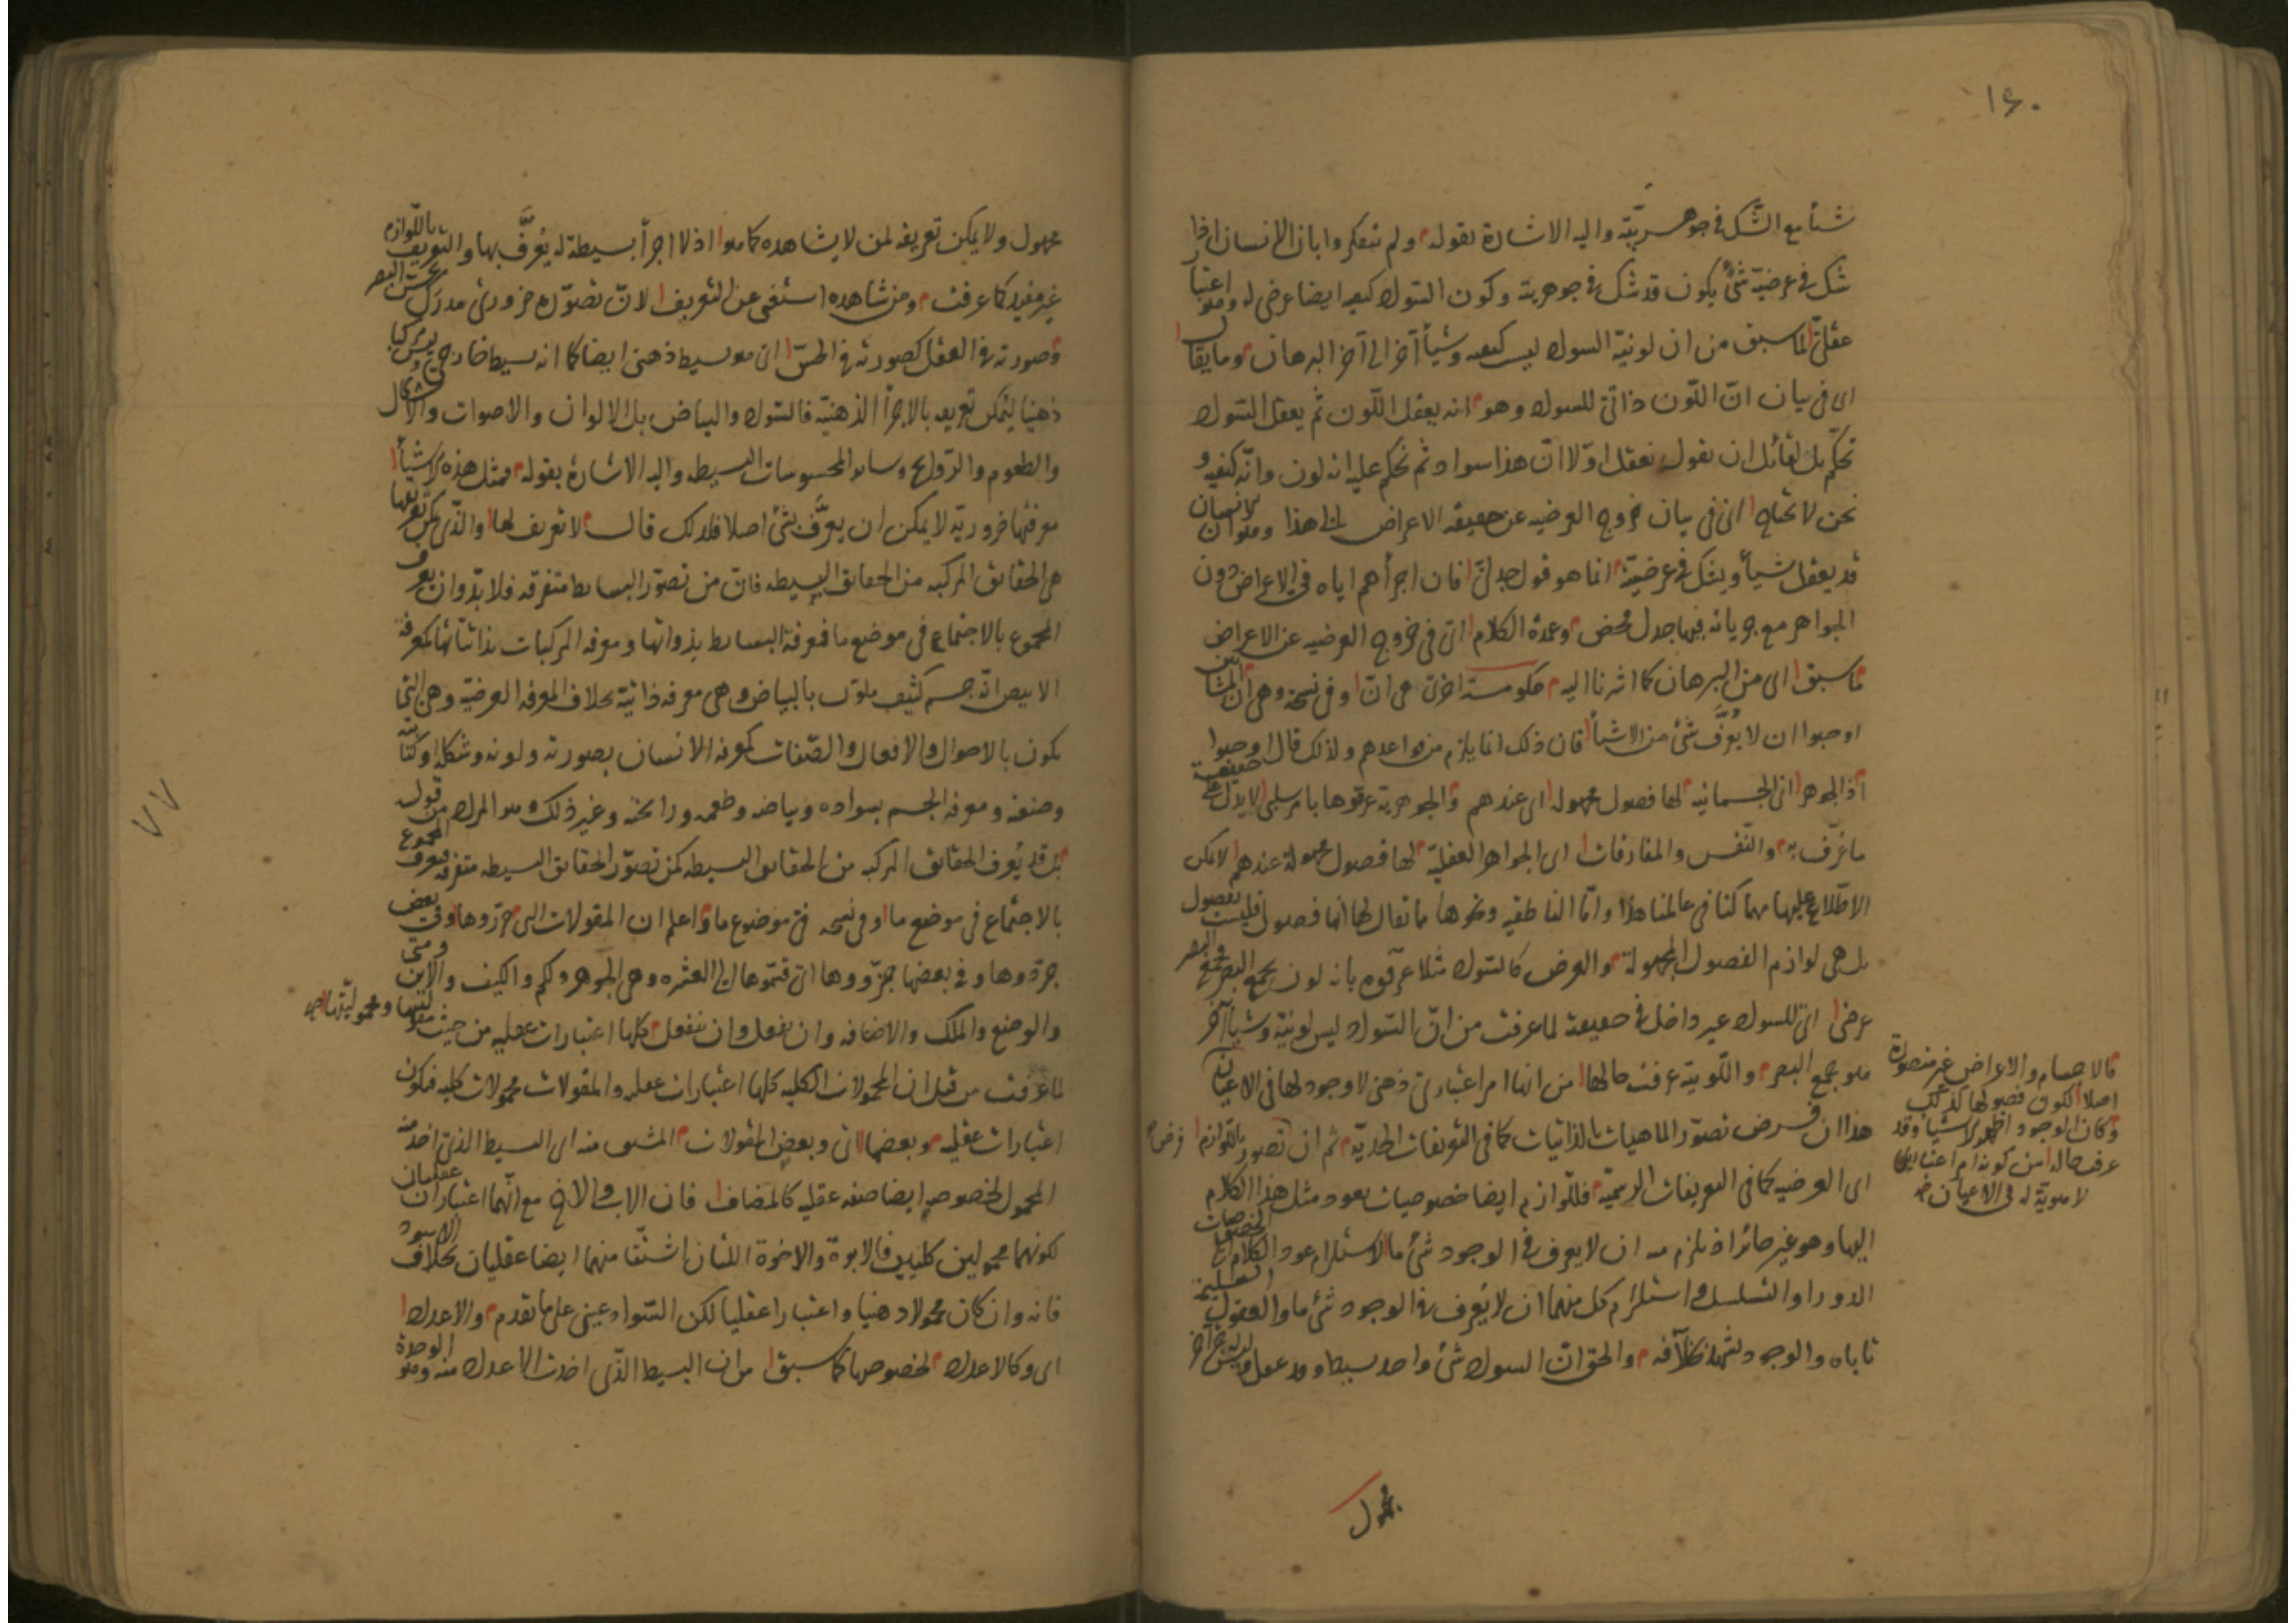 ١٤٠
شيئا مع الشك في جوهريته واليه الاشارة بقوله ولم يتفكروا بان الانسان اذا
شك في عرضية شئ يكون قد شك في جوهريته وكون السواد كيفية ايضا عرضي له وهو اعتبار
عقلي لما سبق من ان لونية السواد ليس كيفية وشيأ آخر الى آخر البرهان وما يقال
اى في بيان انّ اللّون ذاتي للسواد وهو انه يعقل اللّون ثم يعقل السّواد
تحكّم بل لقائل ان يقول نعقل اوّلا انّ هذا سواد ثم نحكم عليه انه لون وانّه كيفية و
نحن لا نحتاج اى في بيان خروج العرضيه عن حقيقة الاعراض الى هذا وهو ان الانسان
قد يعقل شيأ ويشك في عرضيته انما هو قول جدلي فان اجرأهم اياه في الاعراض دون
الجواهر مع جريانه فيها جدل محض وعمدة الكلام اى في خروج العرضيه عن الاعراض
ما سبق اى من البرهان كما اشرنا اليه حكومة اخرى هى انّ وفي نسخة وهى ان المشائين
اوجبوا ان لا يُعرَّف شئ من الاشيأ فان ذلك انما يلزم من قواعدهم ولذلك قال اوجبوا
اذ الجوهر اى الجسمانيه لها فصول مجهولة اى عندهم والجوهرية عرّفوها بامر سلبى لا يدل على حقيقة
ما عرّف به والنّفس والمفارقات اى الجواهر العقليّة لها فصول مجهولة عندهم لا يمكن
الاطّلاع عليها مهما كنا في عالمنا هذا وامّا الناطقيه ونحوها مما يقال لها انها فصول فليست بفصول
بل هى لوازم الفصول المجهولة والعرض كالسّواد مثلا عرّفوه بانه لون يجمع البصر وجمع البصر
عرضى اى للسواد غير داخل في حقيقته لما عرفت من انّ السّواد ليس لونيّة وشيأ آخر
هو جمع البصر واللّونيّة عرفت حالها من انها امر اعتبارى ذهنى لا وجود لها في الاعيان
هذا ان فرض تصوّر الماهيات بالذاتيات كما في التعريفات الحدّيّة ثم ان تصور باللّوازم فرض
اى العرضيه كما في التعريفات الرسميّة فللّوازم ايضا خصوصيات يعود مثل هذا الكلام
اليها وهو غير جائز اذ يلزم منه ان لا يعرف في الوجود شئ ما لاستلزام عود الكلام الى الخصوصيات
الدور او التسلسل واستلزام كل منهما ان لا يُعرف في الوجود شئ ما والعقول السليمة
تاباه والوجود يشهد بخلافه والحق انّ السواد شئ واحد بسيط وقد عقل وليس له جزء آخر
فالاجسام والاعراض غير متصورة
اصلا لكون فصولها كذلك
وكان الوجود اظهر الاشيأ وقد
عرفت حاله من كونه امرا اعتباريا
لا هوية له في الاعيان
مجهول
مجهول ولا يمكن تعريفه لمن لا يشاهده كما هو اذ لا اجزأ بسيطة له يُعرَّف بها والتعريف باللّوازم
غير مفيد كما عرفت ومن شاهده استغنى عن التعريف لانّ تصوّره ضرورى مدرك بحسّ البصر
وصورته في العقل كصورته في الحسّ اى هو بسيط ذهنى ايضا كما انه بسيط خارجى وليس مركبا
ذهنيا ليمكن تعريفه بالاجزأ الذهنيّة فالسّواد والبياض بل الالوان والاصوات والاشكال
والطعوم والرّوايح وساير المحسوسات البسيطه واليه الاشارة بقوله فمثل هذه الاشيأ
معرفتها ضروريّة لا يمكن ان يعرَّف بشئ اصلا فلذلك قال لا تعريف لها والذّى يمكن تعريفها
هى الحقايق المركبه من الحقايق البسيطه فانّ من تصوّر البسايط متفرقه فلا بدّ وان يعرف
المجموع بالاجتماع في موضع ما فمعرفة البسايط بذواتها ومعرفه المركبات بذاتياتها كمعرفة
الابيض انّه جسم كثيف ملوّن بالبياض وهى معرفه ذاتيّة بخلاف المعرفه العرضيّه وهى التى
يكون بالاحوال والافعال والصّفات كمعرفه الانسان بصورته ولونه وشكله او كتابته
وصنعته ومعرفة الجسم بسواده وبياضه وطعمه ورائحته وغير ذلك وهو المراد من قوله
بل قد يُعرف الحقايق المركبه من الحقايق البسيطه كمن تصوّر الحقايق البسيطه متفرقة فيعرف المجموع
بالاجتماع في موضع ما وفي نسخه في موضوع ما واعلم ان المقولات التى حرّروها وفي بعض
جرّدوها وفي بعضها جزّووها اى قسّموها الى العشره وهى الجوهر وكم والكيف والاين ومتى
والوضع والملك والاضافه وان يفعل وان ينفعل كلها اعتبارات عقليه من حيث مقوليتها ومحموليتها
لما عرفت من قبل ان المحمولات الكليه كلها اعتبارات عقليه والمقولات محمولات كليه فيكون
اعتبارات عقليه وبعضها اى وبعض المقولات المشتق منه اى البسيط الذى اخذ منه
المحمول لخصوصه ايضا صفه عقليه كالمضاف فان الاب والاخ مع انّهما اعتباران عقليان
لكونهما محمولين كليين فالابوة والاخوة اللتان اشتقا منهما ايضا عقليان بخلاف الاسود
فانه وان كان محمولا ذهنيا واعتبارا عقليا لكن السّواد عينى على ما تقدم والاعداد
اى وكالاعداد لخصوصها كما سبق من ان البسيط الذّى اخذت الاعداد منه وهو الوحدة